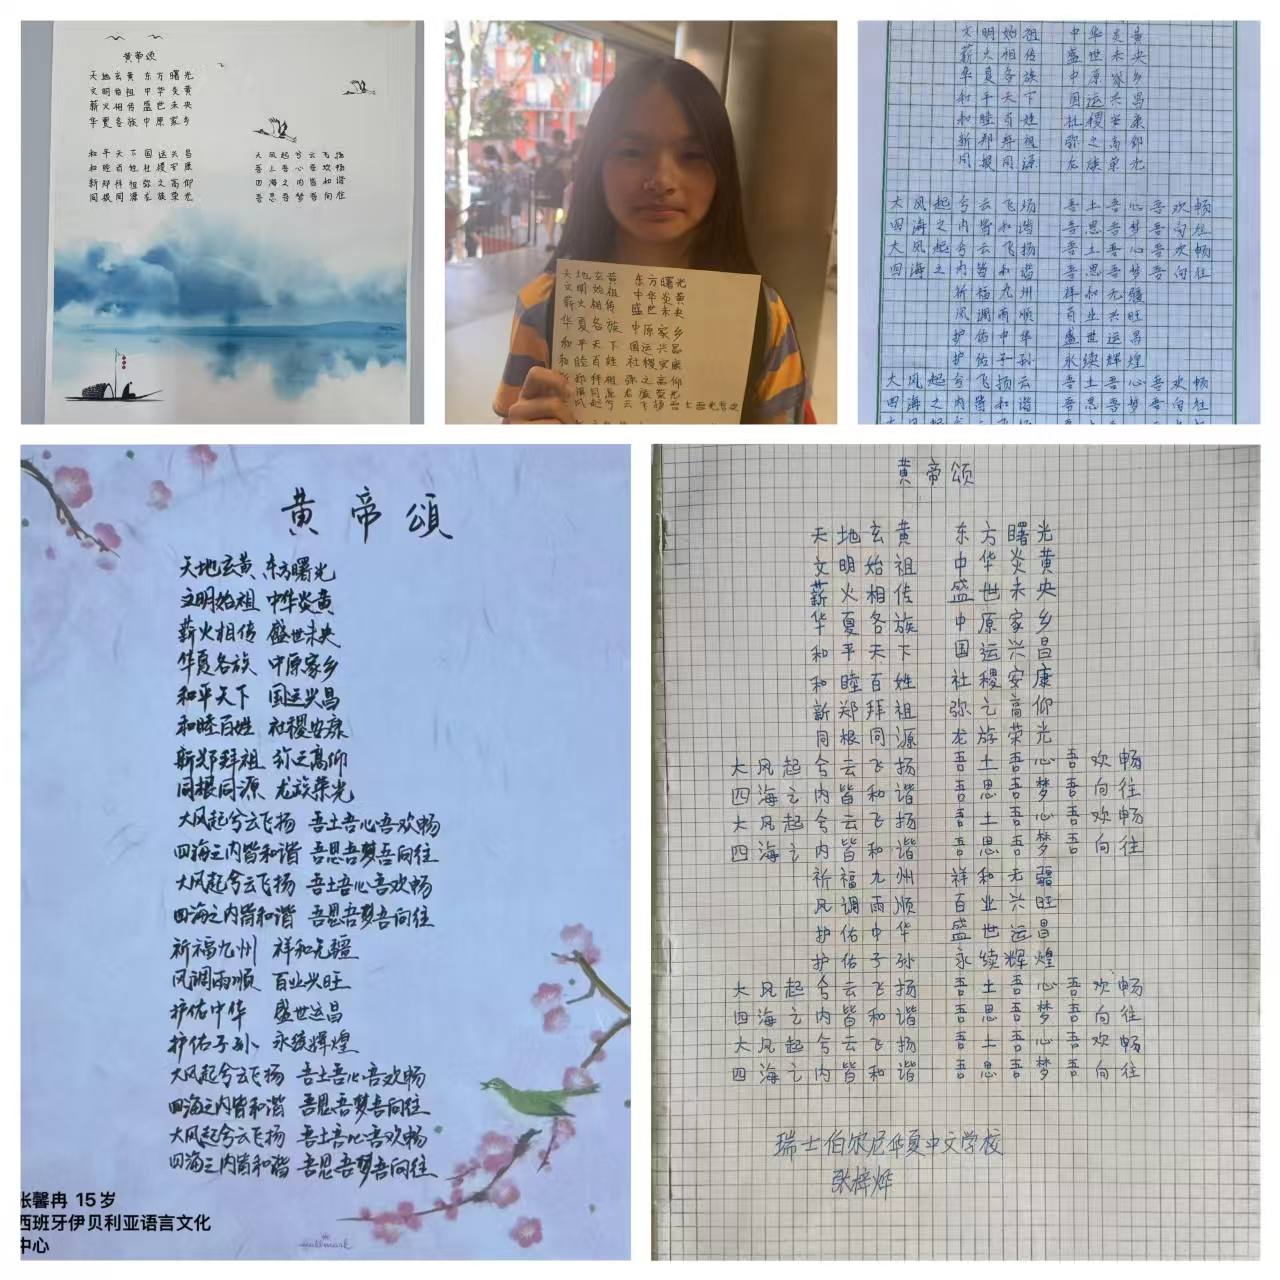 黄帝颂
天地玄黄 东方曙光
文明始祖 中华炎黄
薪火相传 盛世未央
华夏各族 中原家乡
和平天下 国运兴昌
和睦百姓 社稷安康
新郑拜祖 弥之高仰
同根同源 龙族荣光
大风起兮云飞扬
吾土吾心吾欢畅
四海之内皆和谐
吾思吾梦吾向往
天地玄黄 东方曙光
文明始祖 中华炎黄
薪火相传 盛世未央
华夏各族 中原家乡
和平天下 国运兴昌
和睦百姓 社稷安康
新郑拜祖 弥之高仰
同源龙族荣光
风起兮云飞扬吾土吾
文明始祖 中华炎黄
薪火相传 盛世未央
华夏各族 中原家乡
和平天下 国运兴昌
和睦百姓 社稷安康
新郑拜祖 弥之高仰
同根同源 龙族荣光
大风起兮云飞扬 吾土吾心吾欢畅
四海之内皆和谐 吾思吾梦吾向往
大风起兮云飞扬 吾土吾心吾欢畅
四海之内皆和谐 吾思吾梦吾向往
祈福九州 祥和无疆
风调雨顺 百业兴旺
护佑中华 盛世运昌
护佑子孙 永续辉煌
大风起兮飞扬云 吾土吾心吾欢畅
四海之内皆和谐 吾思吾梦吾向往
黄帝頌
天地玄黄 东方曙光
文明始祖 中华炎黄
薪火相传 盛世未央
华夏各族 中原家乡
和平天下 国运兴昌
和睦百姓 社稷安康
新郑拜祖 弥之高仰
同根同源 龙族荣光
大风起兮云飞扬 吾土吾心吾欢畅
四海之内皆和谐 吾思吾梦吾向往
大风起兮云飞扬 吾土吾心吾欢畅
四海之内皆和谐 吾思吾梦吾向往
祈福九州 祥和无疆
风调雨顺 百业兴旺
护佑中华 盛世运昌
护佑子孙 永续辉煌
大风起兮云飞扬 吾土吾心吾欢畅
四海之内皆和谐 吾思吾梦吾向往
大风起兮云飞扬 吾土吾心吾欢畅
四海之内皆和谐 吾思吾梦吾向往
张馨冉 15岁
西班牙伊贝利亚语言文化
中心
Hallmark
黄帝颂
天地玄黄 东方曙光
文明始祖 中华炎黄
薪火相传 盛世未央
华夏各族 中原家乡
和平天下 国运兴昌
和睦百姓 社稷安康
新郑拜祖 弥之高仰
同根同源 龙族荣光
大风起兮云飞扬 吾土吾心吾欢畅
四海之内皆和谐 吾思吾梦吾向往
大风起兮云飞扬 吾土吾心吾欢畅
四海之内皆和谐 吾思吾梦吾向往
祈福九州 祥和无疆
风调雨顺 百业兴旺
护佑中华 盛世运昌
护佑子孙 永续辉煌
大风起兮云飞扬 吾土吾心吾欢畅
四海之内皆和谐 吾思吾梦吾向往
大风起兮云飞扬 吾土吾心吾欢畅
四海之内皆和谐 吾思吾梦吾向往
瑞士伯尔尼华夏中文学校
张梓烨